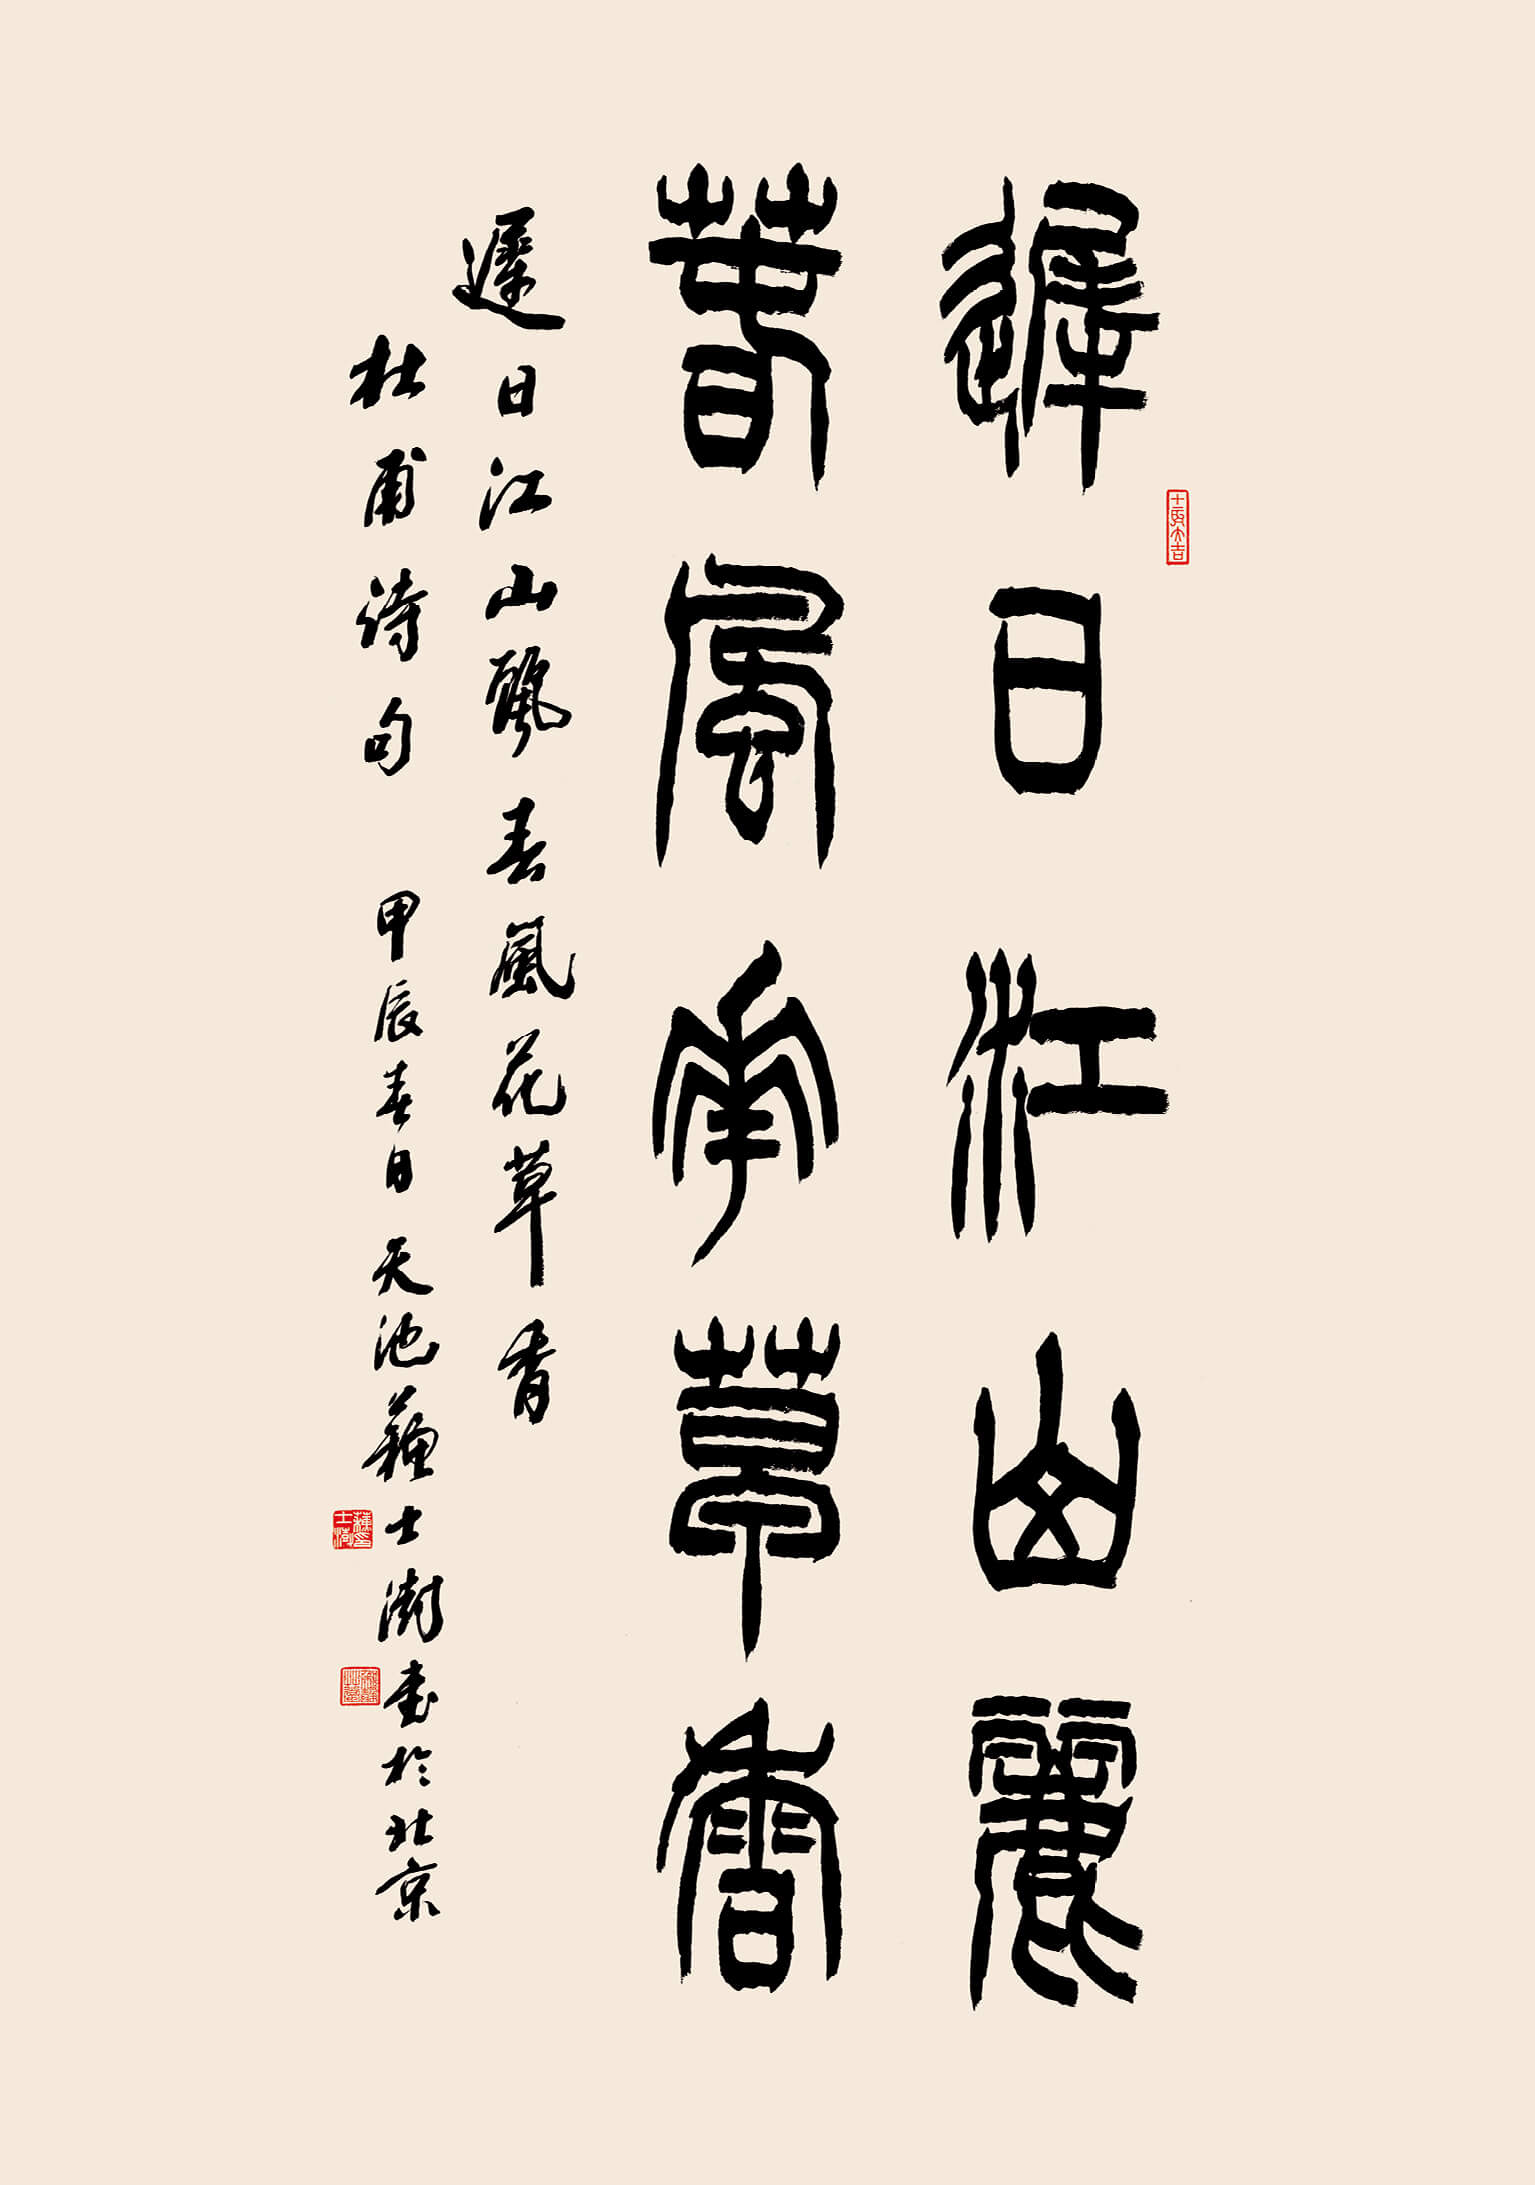 遲日江山麗
春風花草香
遲日江山麗春風花草香
杜甫詩句 甲辰春日 天池蘇士澍書於北京